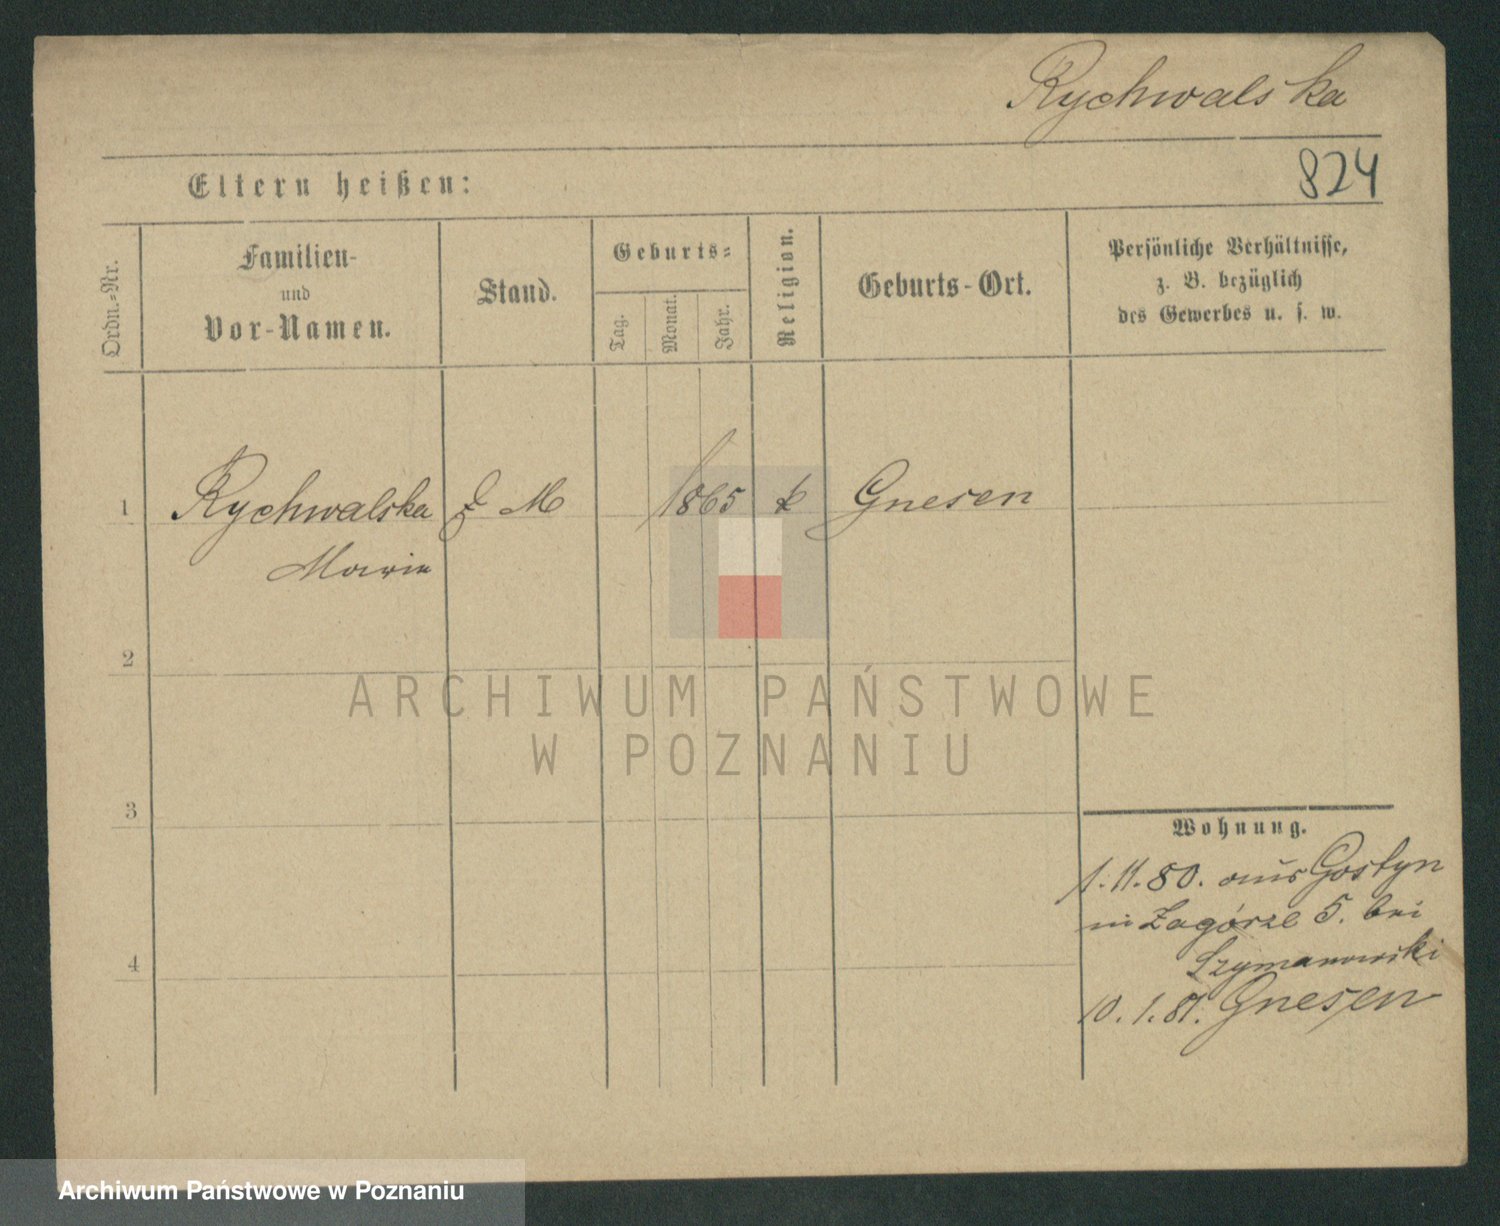 Rychwalska
824
Eltern heißen:
Ordn.=Nr.
Familien-
und
Vor-Namen.
Stand.
Geburts=
Tag.
Monat.
Jahr.
Religion.
Geburts-Ort.
Persönliche Verhältnisse,
z. B. bezüglich
des Gewerbes u. s. w.
1 Rychwalska M 1865 k Gnesen
Marie
2
3
4
ARCHIWUM PAŃSTWOWE
W POZNANIU
Wohnung.
1.11.80. aus Gostyn
in Zagórze 5. bei
Szymanowski
10.1.81. Gnesen
Archiwum Państwowe w Poznaniu